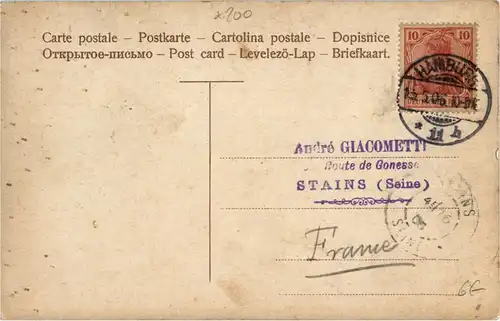 x200
Carte postale - Postkarte - Cartolina postale - Dopisnice
Открытое-письмо - Post card - Levelező-Lap - Briefkaart.
10 10
HAMBURG
* 11 h
André GIACOMETTI
Route de Gonesse
STAINS (Seine)
France
6€